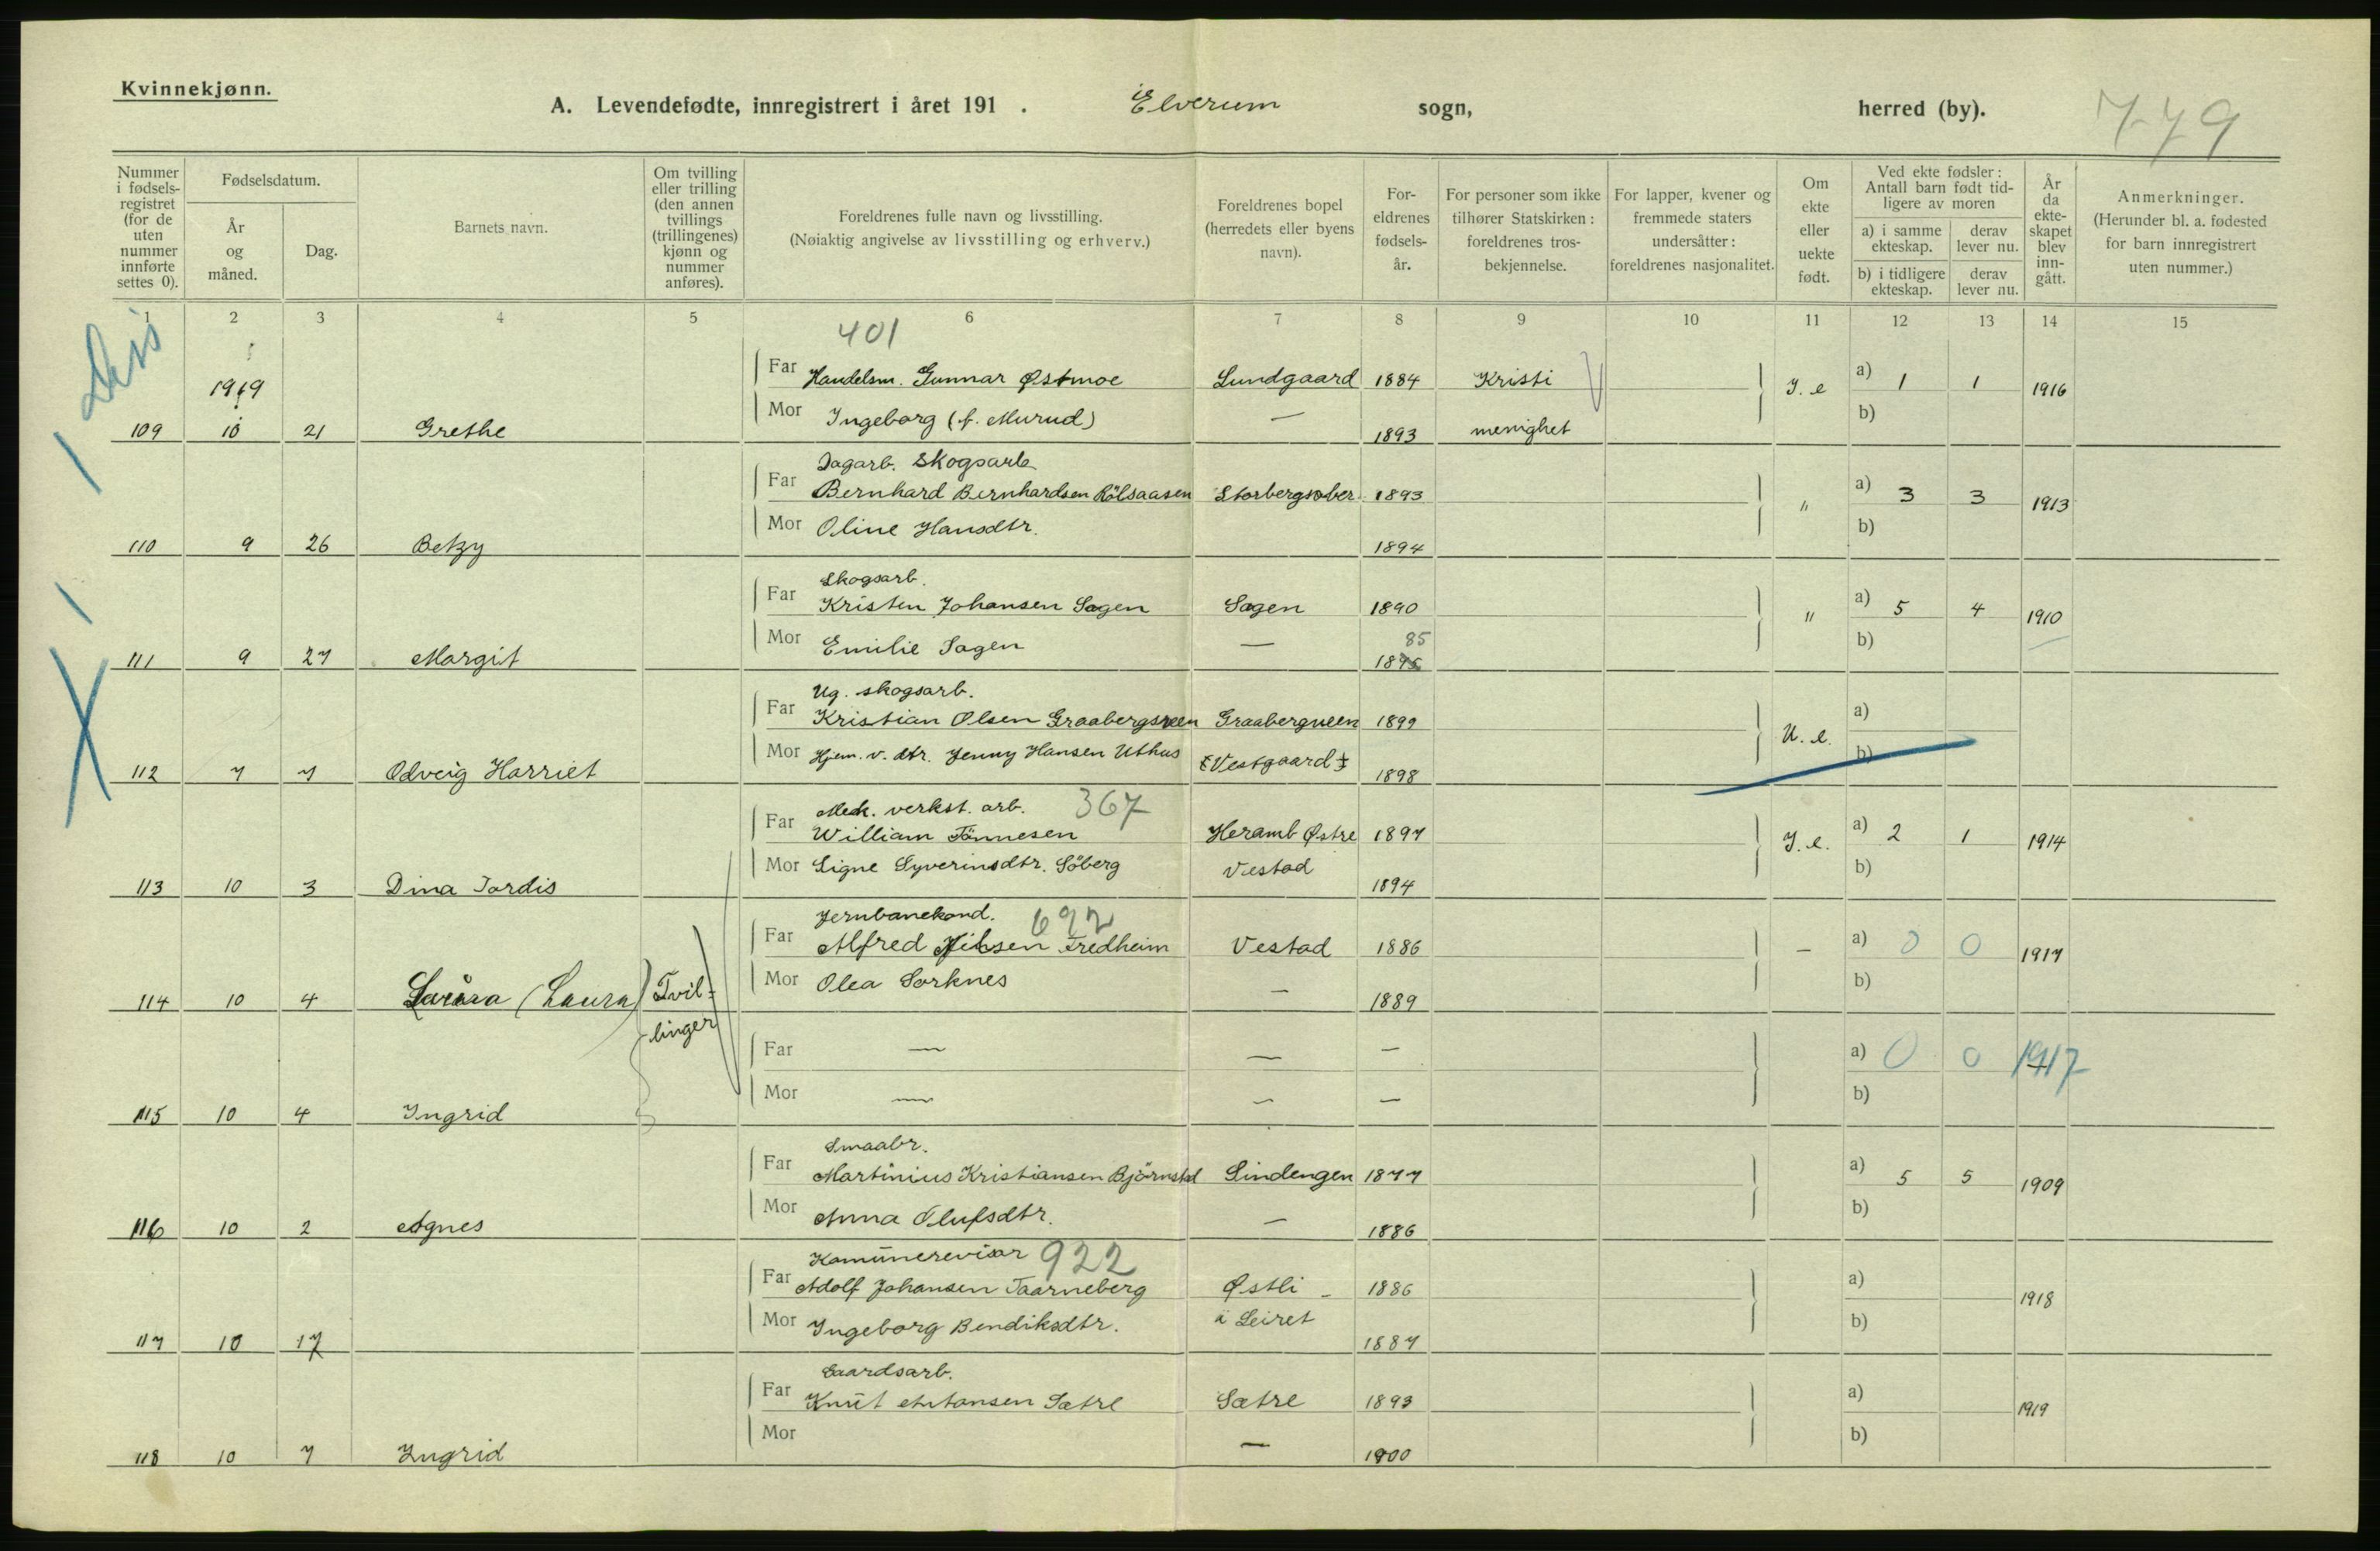 Kvinnekjønn.
A. Levendefødte, innregistrert i året 191 . Elverum sogn, herred (by). 779
Nummer i fødsels-registret (for de uten nummer innførte settes 0).
Fødselsdatum.
År og måned.
Dag.
Barnets navn.
Om tvilling eller trilling (den annen tvillings (trillingenes) kjønn og nummer anføres).
Foreldrenes fulle navn og livsstilling.
(Nøiaktig angivelse av livsstilling og erhverv.)
Foreldrenes bopel (herredets eller byens navn).
For-eldrenes fødsels-år.
For personer som ikke tilhører Statskirken: foreldrenes tros-bekjennelse.
For lapper, kvener og fremmede staters undersåtter: foreldrenes nasjonalitet.
Om ekte eller uekte født.
Ved ekte fødsler: Antall barn født tid-ligere av moren
a) i samme ekteskap. derav lever nu.
b) i tidligere ekteskap. derav lever nu.
År da ekte-skapet blev inn-gått.
Anmerkninger.
(Herunder bl. a. fødested for barn innregistrert uten nummer.)
1 2 3 4 5 6 7 8 9 10 11 12 13 14 15
401
1919
Far Handelsm. Gunnar Østmoe Lundgaard 1884 Kristi J. e a) 1 1 1916
Mor Ingeborg (f. Murud) — 1893 menighet b)
109 10 21 Grethe
Dagarb. Skogsarb
Far Bernhard Bernhardsen Rölsaasen Storbergsober. 1893 " a) 3 3 1913
Mor Oline Hansdtr. 1894 b)
110 9 26 Betzy
Skogsarb.
Far Kristen Johansen Sagen Sagen 1890 " a) 5 4 1910
Mor Emilie Sagen — 85 1895 b)
111 9 27 Margit
Ug. skogsarb.
Far Kristian Olsen Graabergsveen Graabergveen 1899 U. e. a)
Mor Hjem. v. dtr. Jenny Hansen Uthus Vestgaard 1898 b)
112 7 7 Odveig Harriet
Mek. verkst. arb. 367
Far William Tönnesen Heramb Østre 1897 J. e. a) 2 1 1914
Mor Signe Syverinsdtr. Söberg Vestad 1894 b)
113 10 3 Dina Jordis
Jernbanekond. 692
Far Alfred Nilsen Fredheim Vestad 1886 — a) 0 0 1917
Mor Olea Sorknes — 1889 b)
114 10 4 (Laura) Tvil-
linger
Far — — — a) 0 0 1917
Mor — — — b)
115 10 4 Ingrid
Smaabr.
Far Martinius Kristiansen Björnstad Lindengen 1877 a) 5 5 1909
Mor Anna Olufsdtr. — 1886 b)
116 10 2 Agnes
Komünerevisor 922
Far Adolf Johansen Taarneberg Østli - 1886 a) 1918
Mor Ingeborg Bendiksdtr. i Leiret 1887 b)
117 10 17
Gaardsarb.
Far Knut Antonsen Sætre Sætre 1893 a) 1919
Mor — 1900 b)
118 10 7 Ingrid